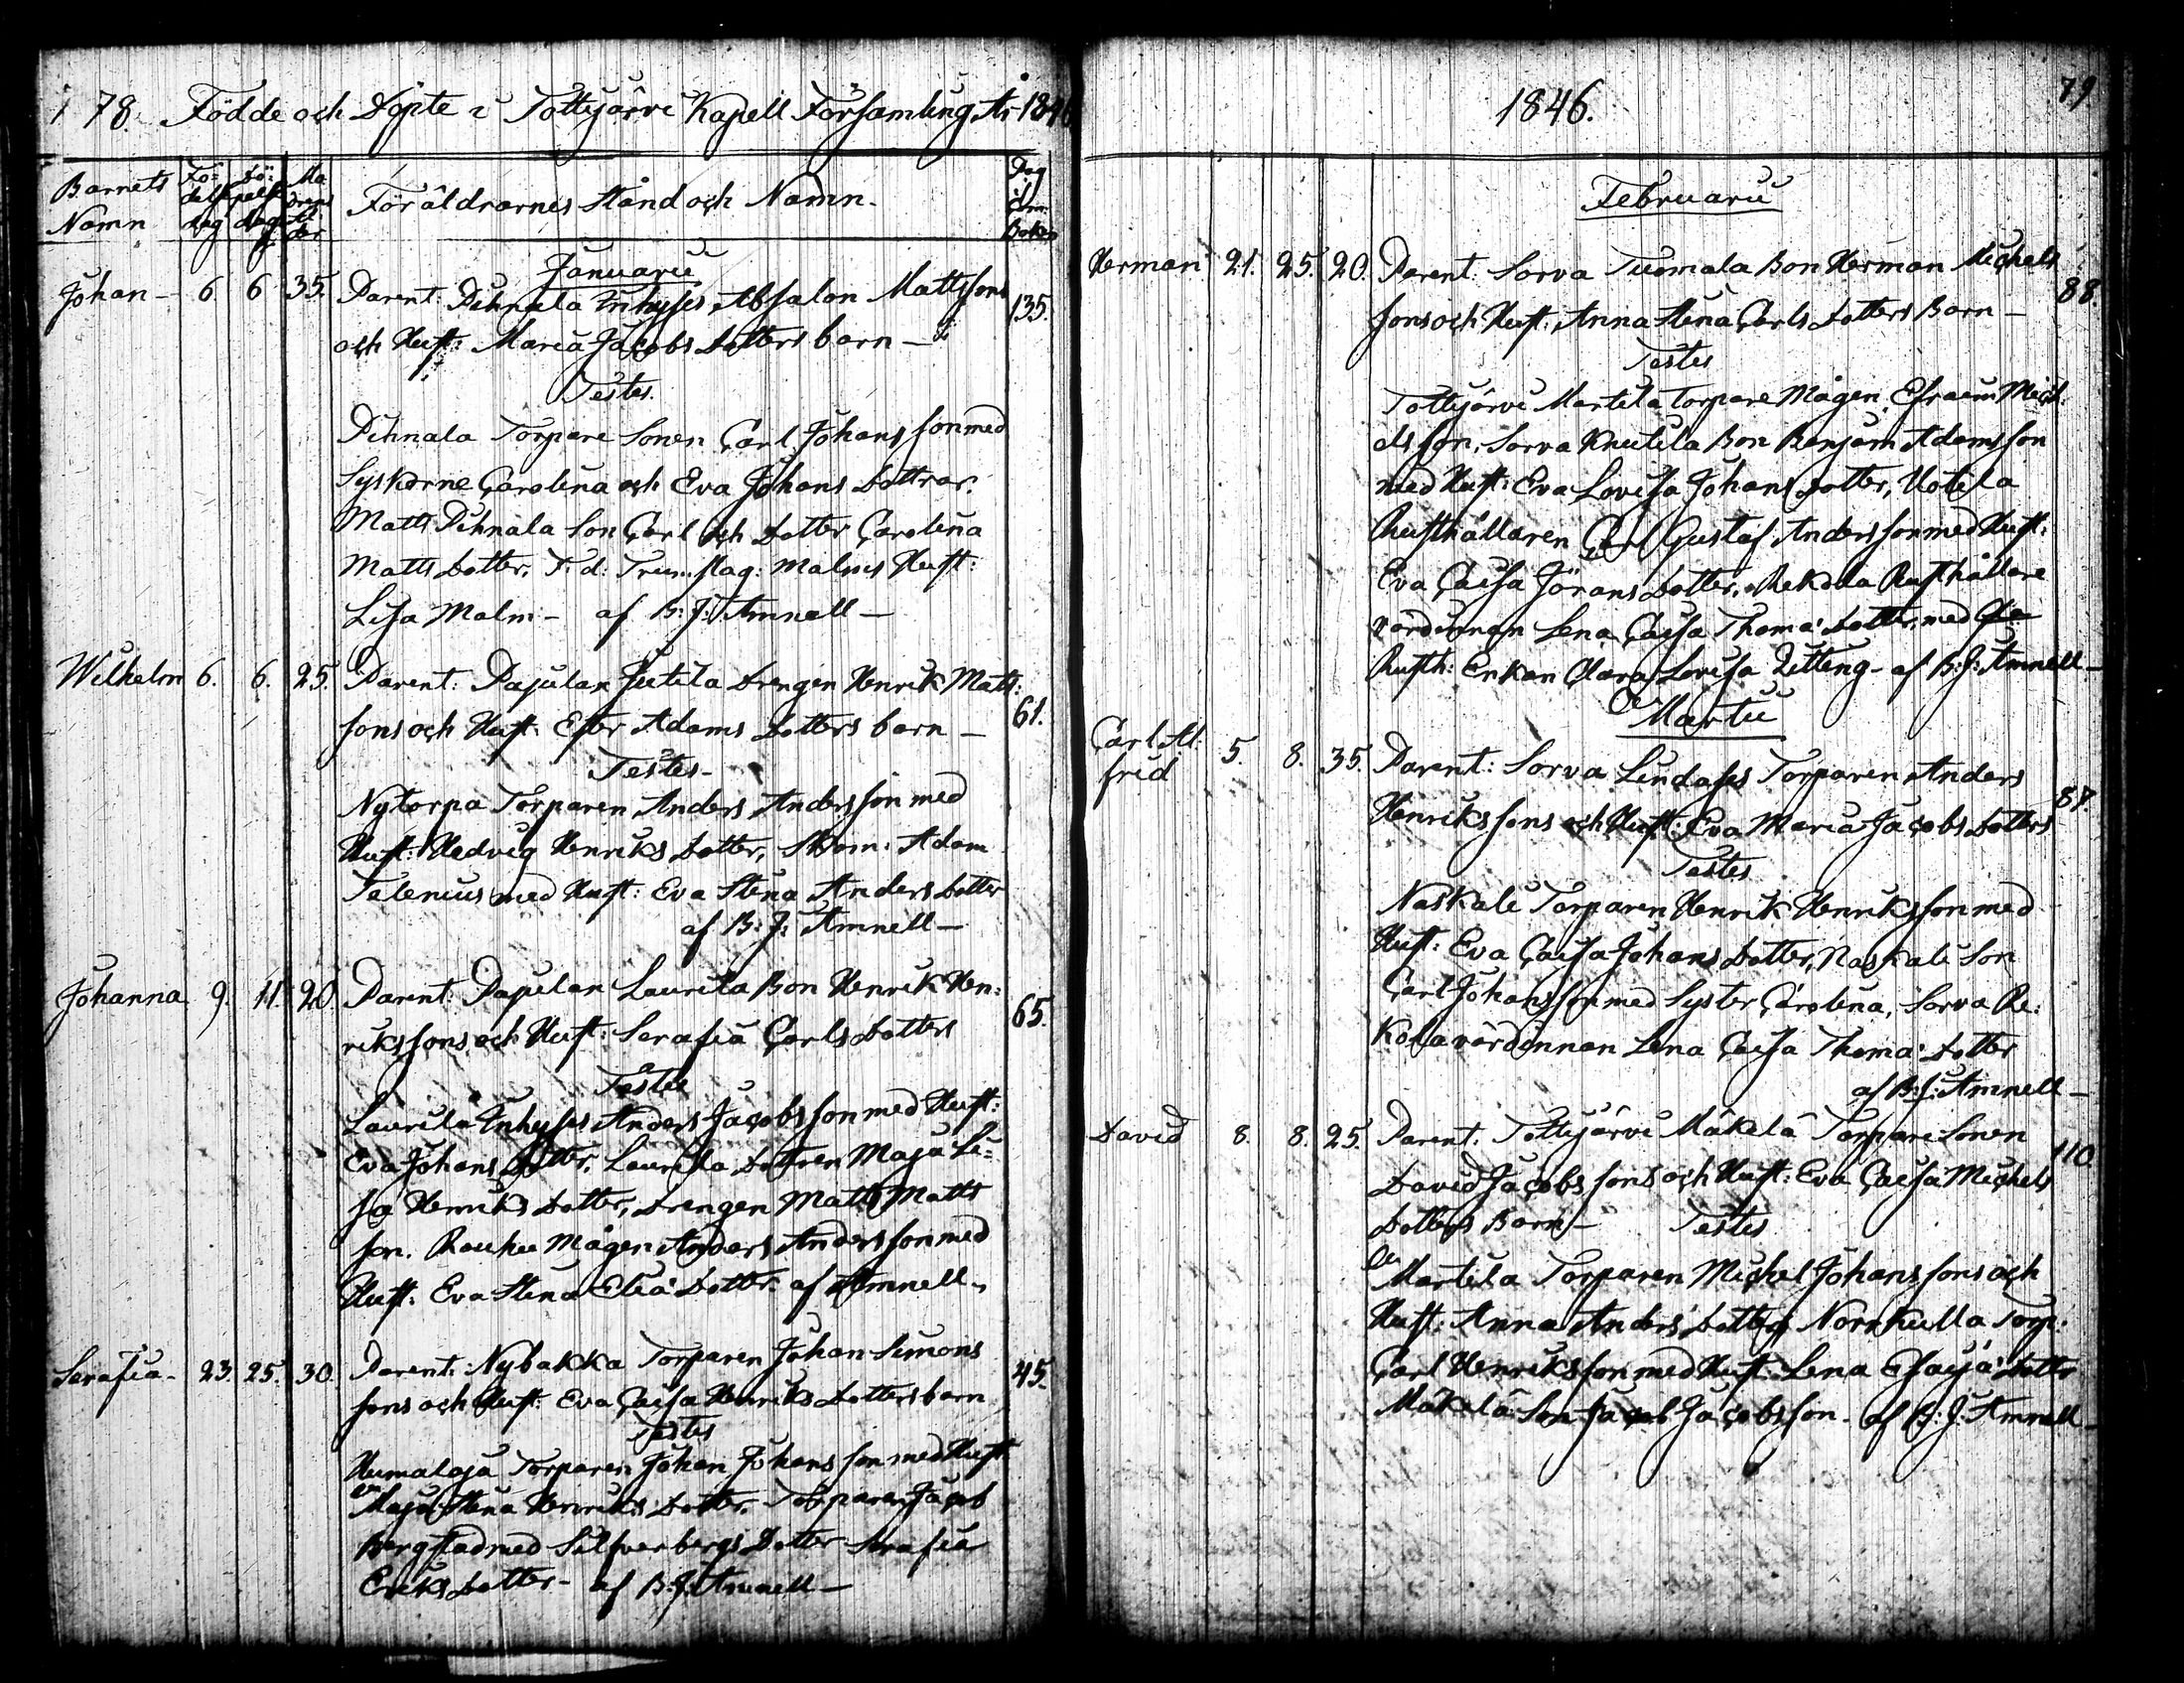 78. Födde och Döpte i Tottijärvi Kapell Församling År 1846
Barnets Namn
Fö-
delse
dag
Dö-
pelse
dag
Mo
drens
Ål
der
Föräldrarnes Stånd och Namn.
Pag
i Com:
Boken
Januarii
Johan – 6. 6 35. Parent: Pihnala Inhyses Absalon Mattssons 135.
och Hust: Maria Jacobs Dotters barn –
Testes.
Pihnala Torpare Sonen Carl Johansson med
Syskorne Carolina och Eva Johans Dottrar.
Matts Pihnala Son Carl och Dotter Carolina
Matts Dotter, F. d: Trum slag: Malms Hust:
Lisa Malm – af B: J: Amnell –
Wilhelm 6. 6. 25. Parent: Pajulax Jutila Drengen Henrik Matts: 61.
sons och Hust: Ester Adams Dotters barn –
Testes –
Nytorpa Torparen Anders Andersson med
Hust: Hedvig Henriks Dotter, Skom: Adam
Telenius med Hust: Eva Stina Anders Dotter
af B: J: Amnell –
Johanna 9. 11. 20. Parent: Pajulax Laurila Bon Henrik Hen: 65.
rikssons och Hust: Serafia Carls Dotters
Testes
Laurila Inhyses Anders Jacobsson med Hust:
Eva Johans Dotter. Laurila Dottren Maja Li=
sa Henriks Dotter, Drengen Matts Matts
son. Rauhu Mågen Anders Andersson med
Hust: Eva Stina Eliæ Dotter. af Amnell –
Serafia – 23. 25. 30. Parent: Nybakka Torparen Johan Simons 45.
sons och Hust: Eva Caisa Henriks Dotters barn
Testes
Humalaja Torparen Johan Johansson med Hust
Maja Stina Henriks Dotter. Torparen Jacob
Bergstad med Silfverbergs Dotter Serafia
Eriks Dotter – af B: J: Amnell –
1846. 79
Februarii
Herman 21. 25. 20. Parent: Sorva Tuomala Bon Herman Michels 88.
sons och Hust: Anna Stina Carls Dotters Barn –
Testes
Tottijärvi Martila Torpare Mågen Efraim Mich
elsson, Sorva Knutila Bon Benjam Adamsson
med Hust: Eva Lovisa Johans Dotter, Uotila
Rusthållaren Carl Gustaf Andersson med Hust:
Eva Caisa Jörans Dotter, Rekola Rusthållare
värdinnan Lena Caisa Thomæ Dotter, med
Rusth: Enkan Clara Lovisa Zitting – af B: J: Amnell –
Martii
Carl Al
frid 5. 8. 35. Parent: Sorva Lindases Torparen Anders 87.
Henrikssons och Hust: Eva Maria Jacobs Dotters
Testes
Naskali Torparen Henrik Henriksson med
Hust: Eva Caisa Johans Dotter, Naskali Son
Carl Johansson med Syster Carolina, Sorva Re:
kola värdinnan Lena Caisa Thomæ Dotter
af B: J: Amnell –
David 8. 8. 25. Parent: Tottijärvi Mäkelä Torpare Sonen 110
David Jacobssons och Hust: Eva Caisa Michels
Dotters Barn – Testes
Martila Torparen Michel Johanssons och
Hust: Anna Anders Dotter, Norrkulla Torp:
Carl Henriksson med Hust: Lena Esaiæ Dotter
Mäkelä Son Jacob Jacobsson – af B: J: Amnell –